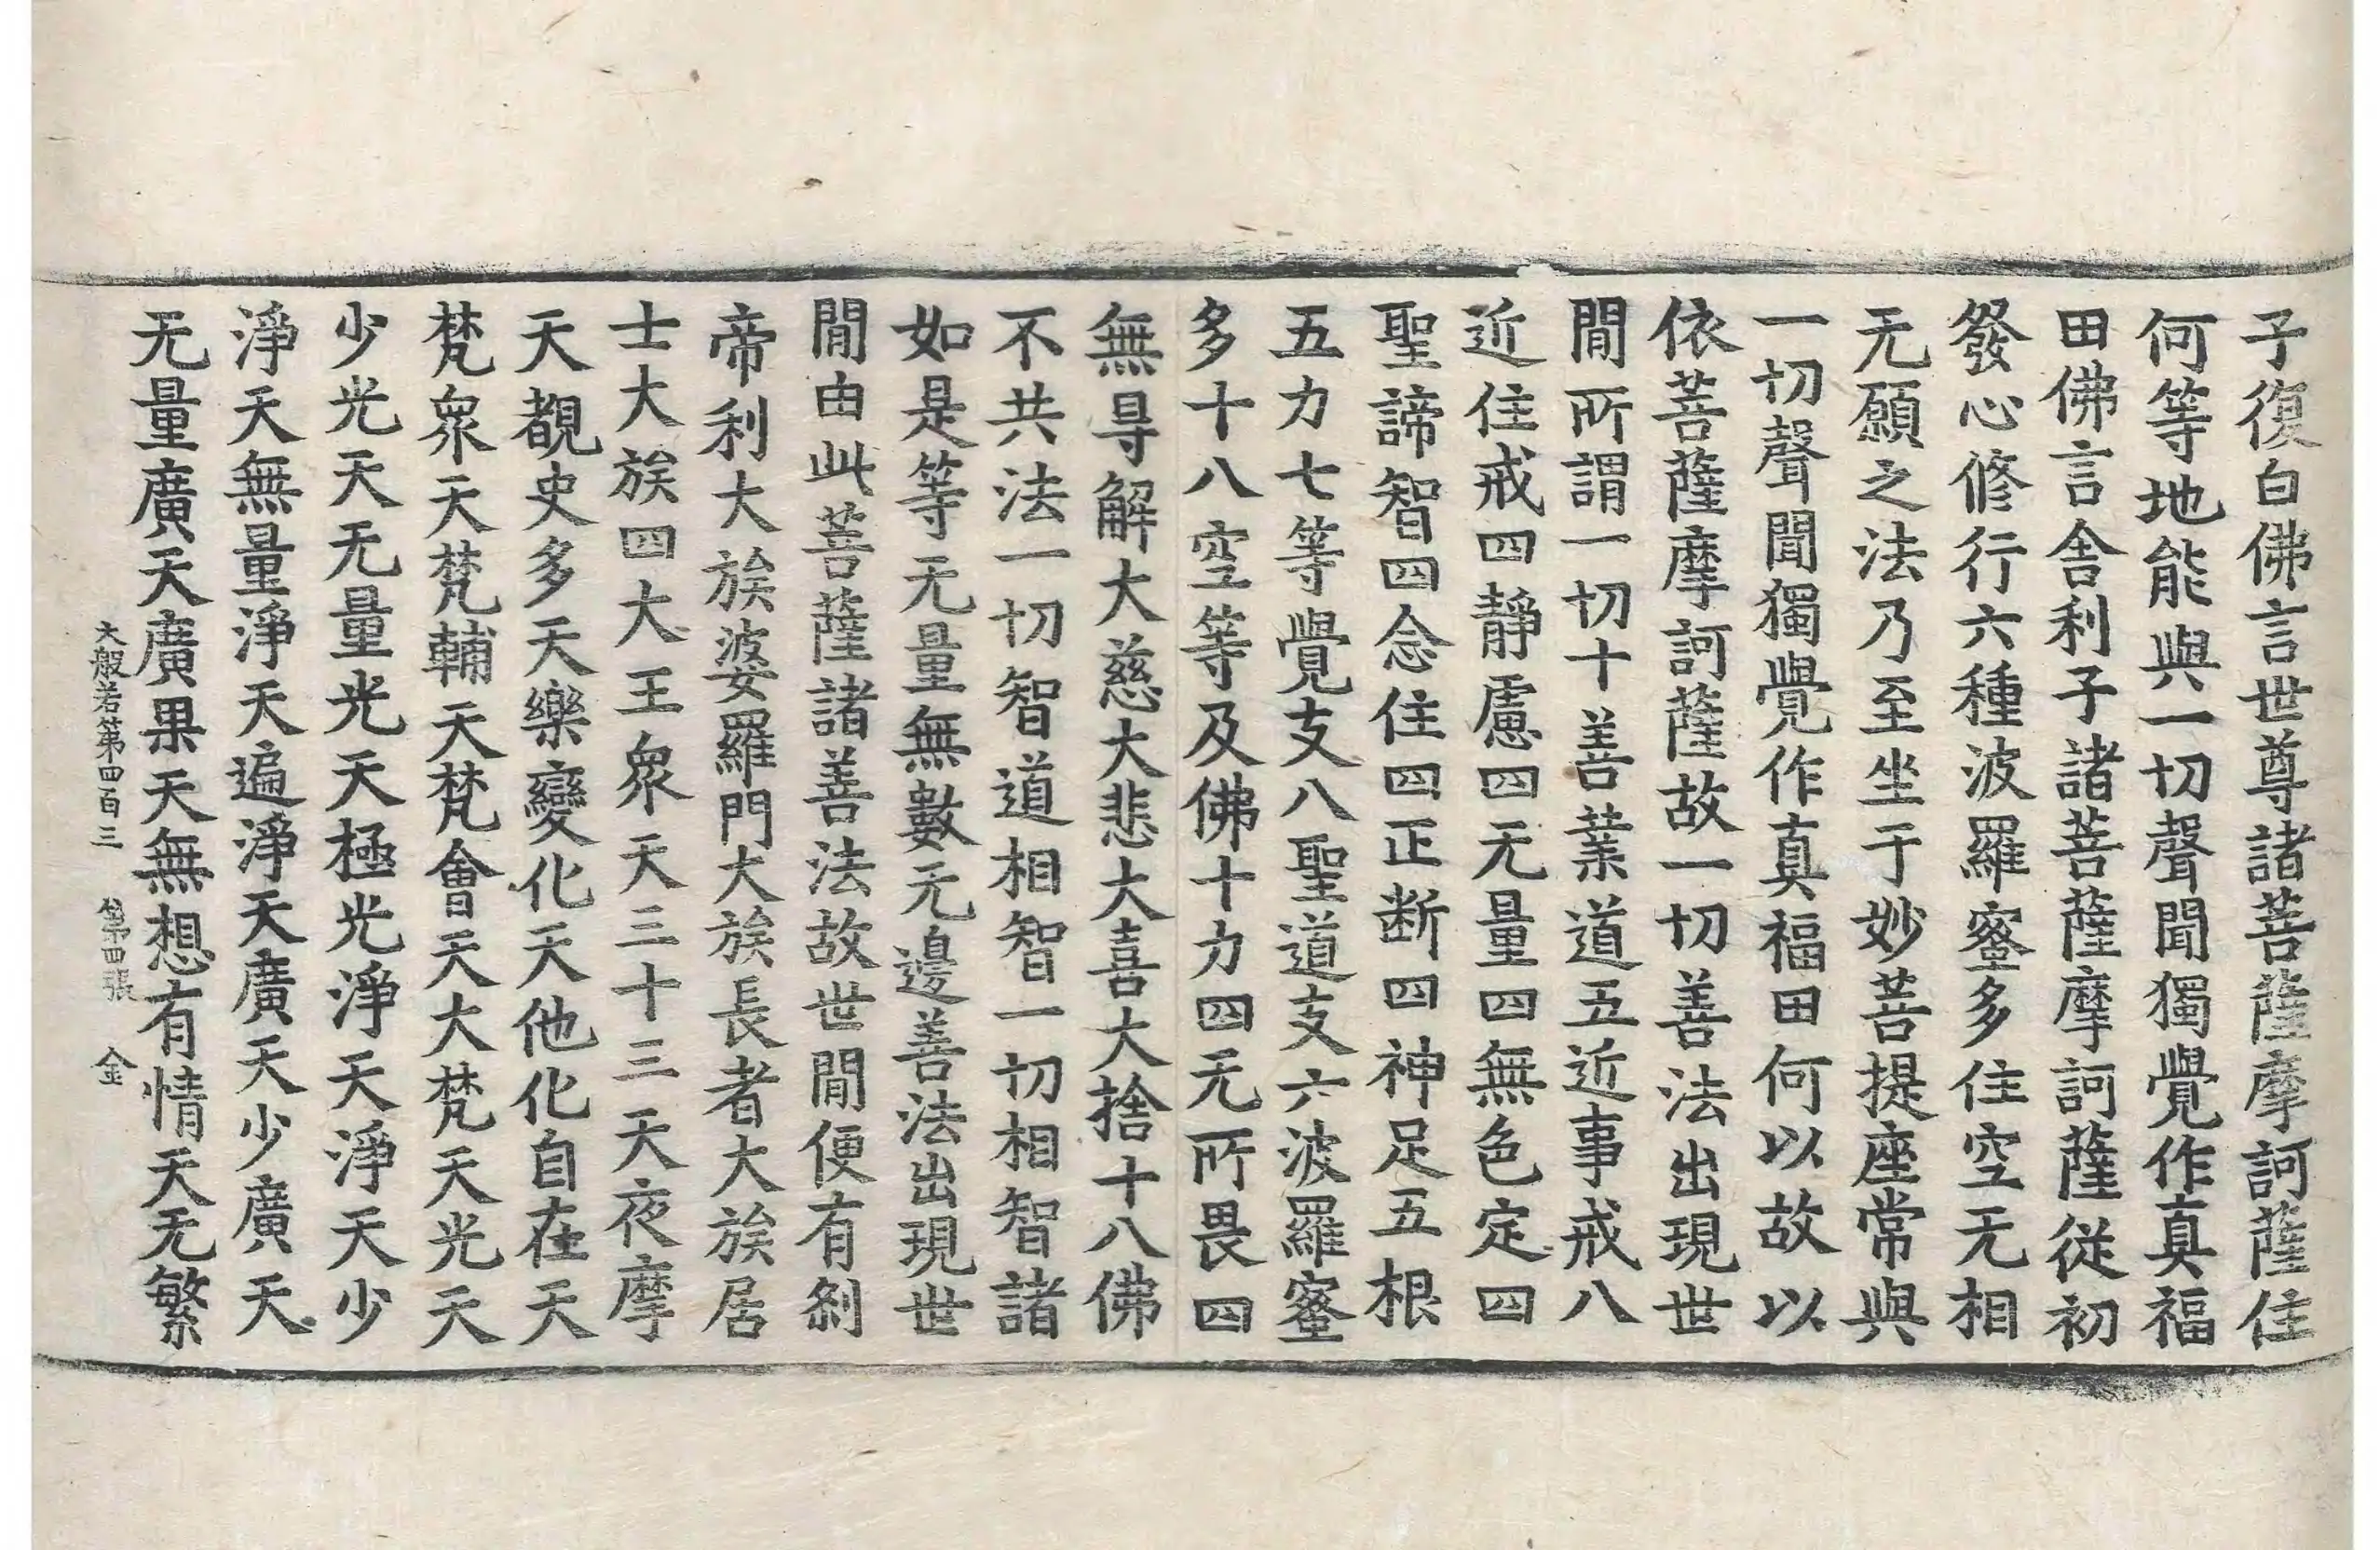 子復白佛言世尊諸菩薩摩訶薩住
何等地能與一切聲聞獨覺作真福
田佛言舍利子諸菩薩摩訶薩從初
發心修行六種波羅蜜多住空无相
无願之法乃至坐于妙菩提座常與
一切聲聞獨覺作真福田何以故以
依菩薩摩訶薩故一切善法出現世
閒所謂一切十善業道五近事戒八
近住戒四靜慮四无量四無色定四
聖諦智四念住四正断四神足五根
五力七等覺支八聖道支六波羅蜜
多十八空等及佛十力四无所畏四
無㝵解大慈大悲大喜大捨十八佛
不共法一切智道相智一切相智諸
如是等无量無數无邊善法出現世
閒由此菩薩諸善法故世閒便有刹
帝利大族婆羅門大族長者大族居
士大族四大王衆天三十三天夜摩
天覩史多天樂變化天他化自在天
梵衆天梵輔天梵會天大梵天光天
少光天无量光天極光淨天淨天少
淨天無量淨天遍淨天廣天少廣天
无量廣天廣果天無想有情天无繁
大般若第四百三 第四張 金